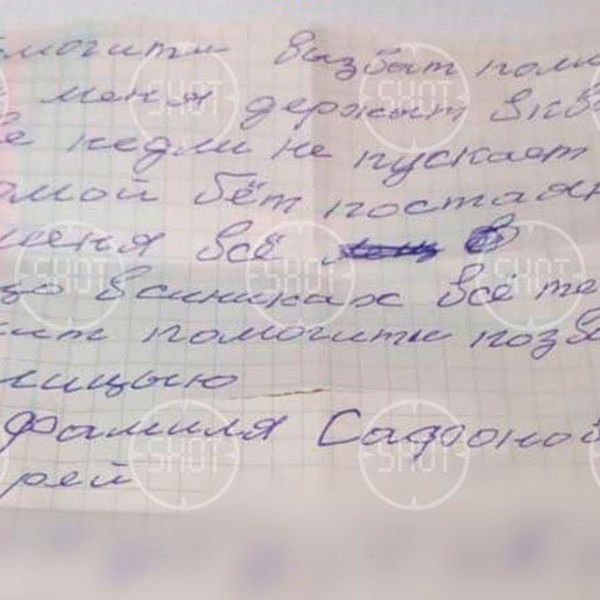 могити вызват пом
меня держыт вкв
е недли не пускает
мой бёт постоян
меня всё
цо всиниках всё те
ит помогити позв
лицыю
фамиля Сафонов
рей